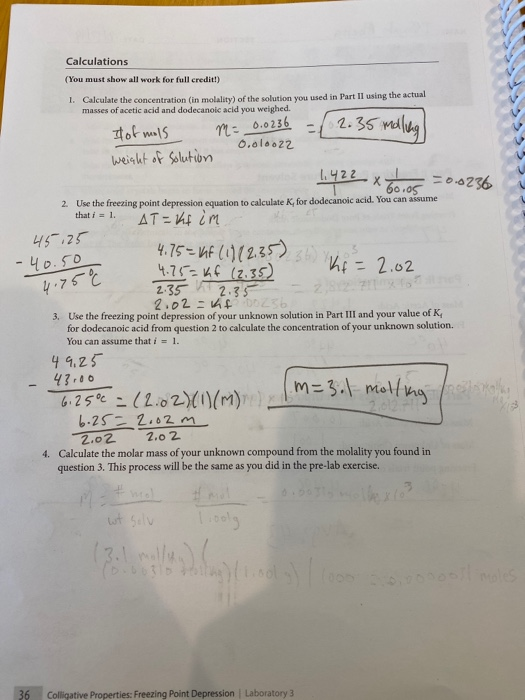 Calculations
(You must show all work for full credit!)
1. Calculate the concentration (in molality) of the solution you used in Part II using the actual
masses of acetic acid and dodecanoic acid you weighed.
# of mols
weight of solution
m = 0.0236
0.010022
= 2.35 mol/kg
1.422 x 1 = 0.0236
1 60.05
2. Use the freezing point depression equation to calculate Kf for dodecanoic acid. You can assume
that i = 1. ΔT = Kf i m
45.25
- 40.50
4.75°C
4.75 = Kf (1)(2.35)
4.75 = Kf (2.35)
2.35 2.35
2.02 = Kf
Kf = 2.02
3. Use the freezing point depression of your unknown solution in Part III and your value of Kf
for dodecanoic acid from question 2 to calculate the concentration of your unknown solution.
You can assume that i = 1.
49.25
- 43.00
6.25°C = (2.02)(1)(m)
6.25 = 2.02 m
2.02 2.02
m = 3.1 mol/kg
4. Calculate the molar mass of your unknown compound from the molality you found in
question 3. This process will be the same as you did in the pre-lab exercise.
M = # mol
wt Solv
(3.1 mol/kg)
36 Colligative Properties: Freezing Point Depression | Laboratory 3